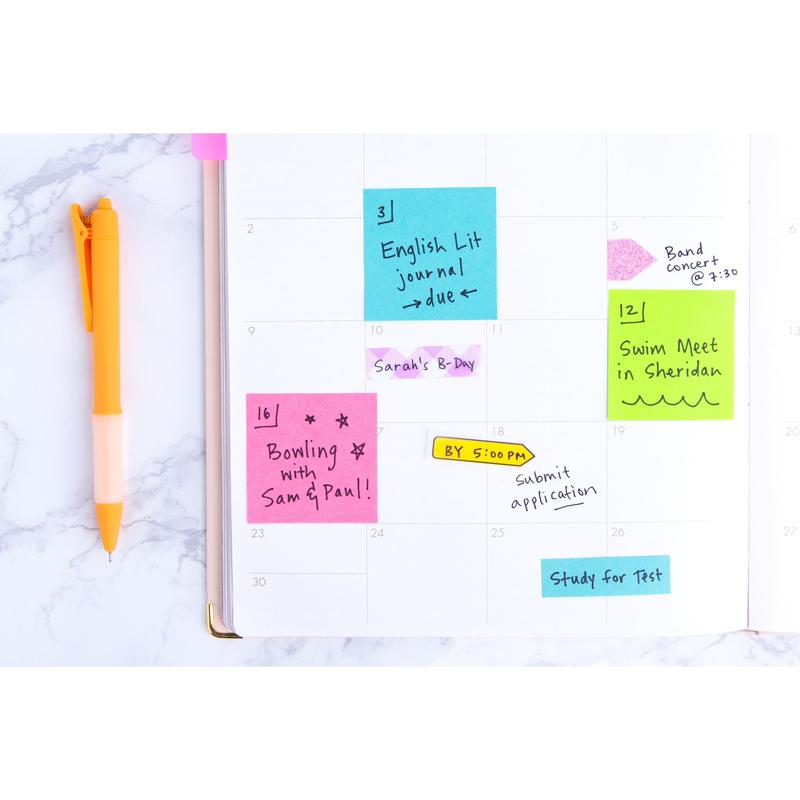 2
3
English Lit
journal
→due←
5
Band
concert
@ 7:30
6
9
10
11
12
Swim Meet
in Sheridan
13
Sarah's B-Day
16
Bowling
with
Sam & Paul!
7
18
BY 5:00PM
Submit
application
19
20
23
24
25
26
27
Study for Test
30